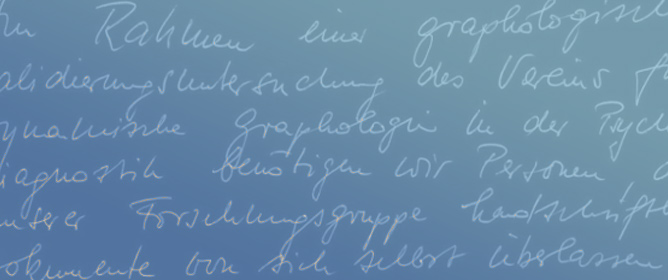 Im Rahmen einer graphologisch
alidierungsuntersuchung des Vereins f
ynamische Graphologie in der Psych
iagnostik benötigen wir Personen d
unserer Forschungsgruppe handschrift
okumente von sich selbst überlassen